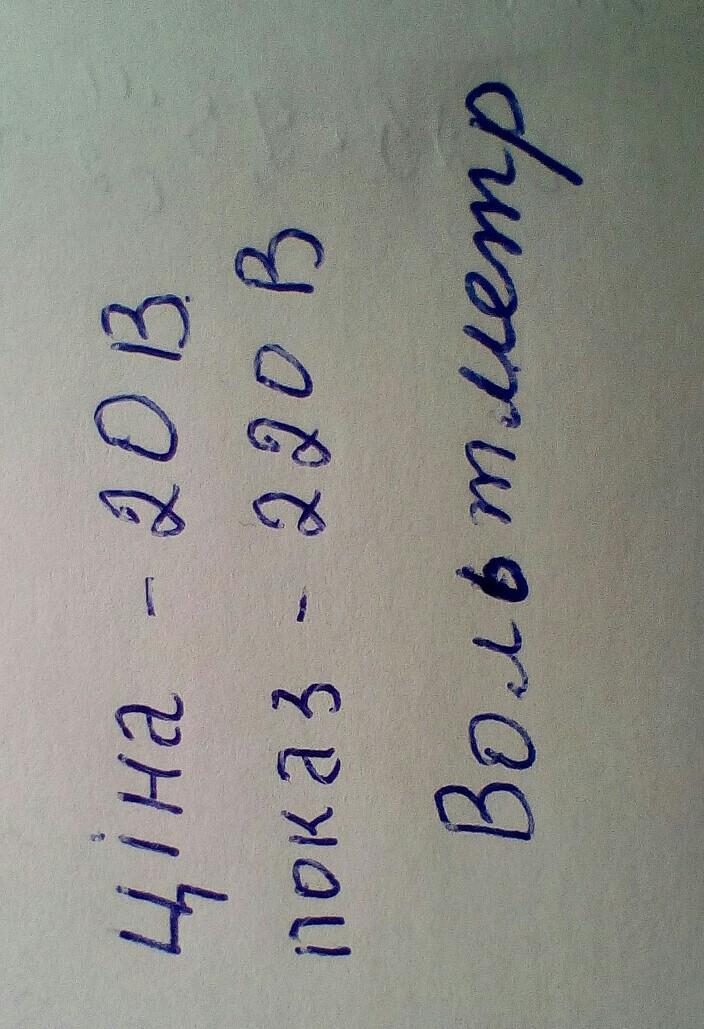 Ціна - 20 В
показ - 220 В
Вольтметр